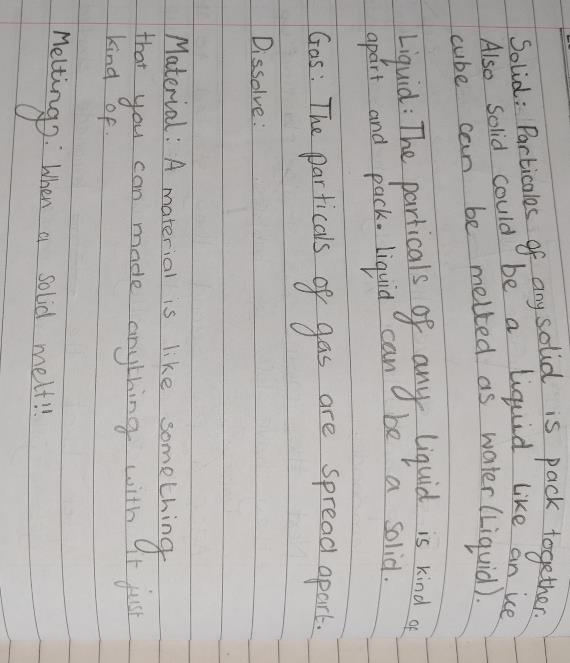 Solid: Particales of any solid is pack together.
Also solid could be a liquid like an ice
cube can be melted as water (Liquid).
Liquid: The particals of any liquid is kind of
apart and pack. liquid can be a solid.
Gas: The particals of gas are spread apart.
Dissolve:
Material: A material is like something
that you can made anything with it just
kind of.
Melting: When a solid melt!!